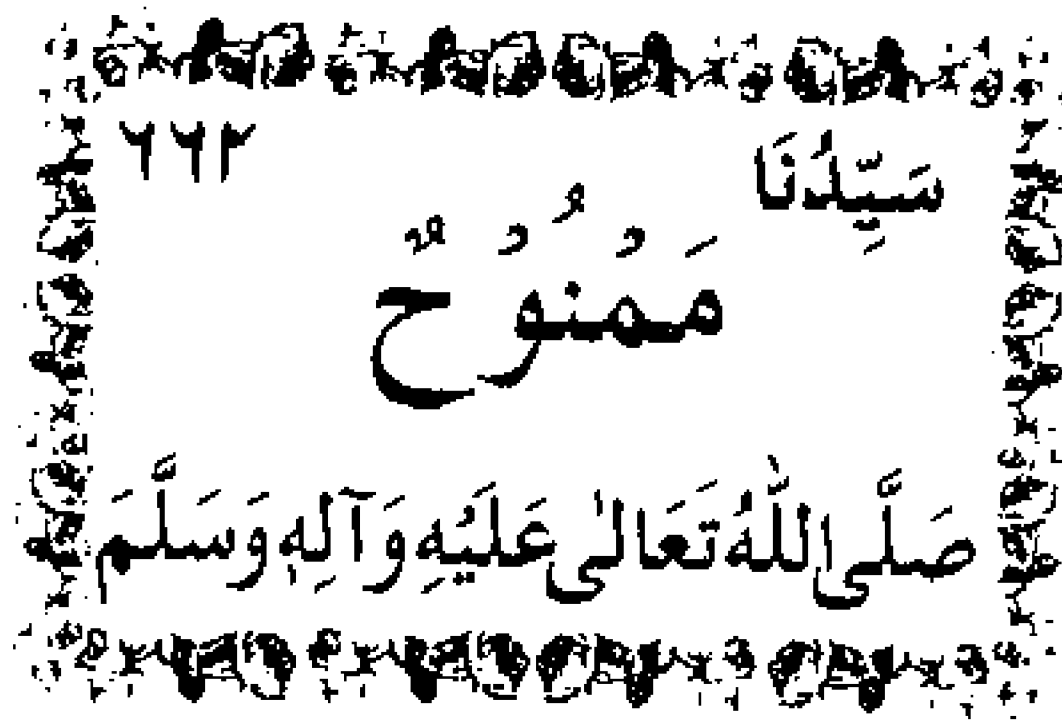 سَيِّدُنَا ٦٦٢
مَمْنُوْحٌ
صَلَّى اللّٰهُ تَعَالىٰ عَلَيْهِ وَآلِهٖ وَسَلَّمَ